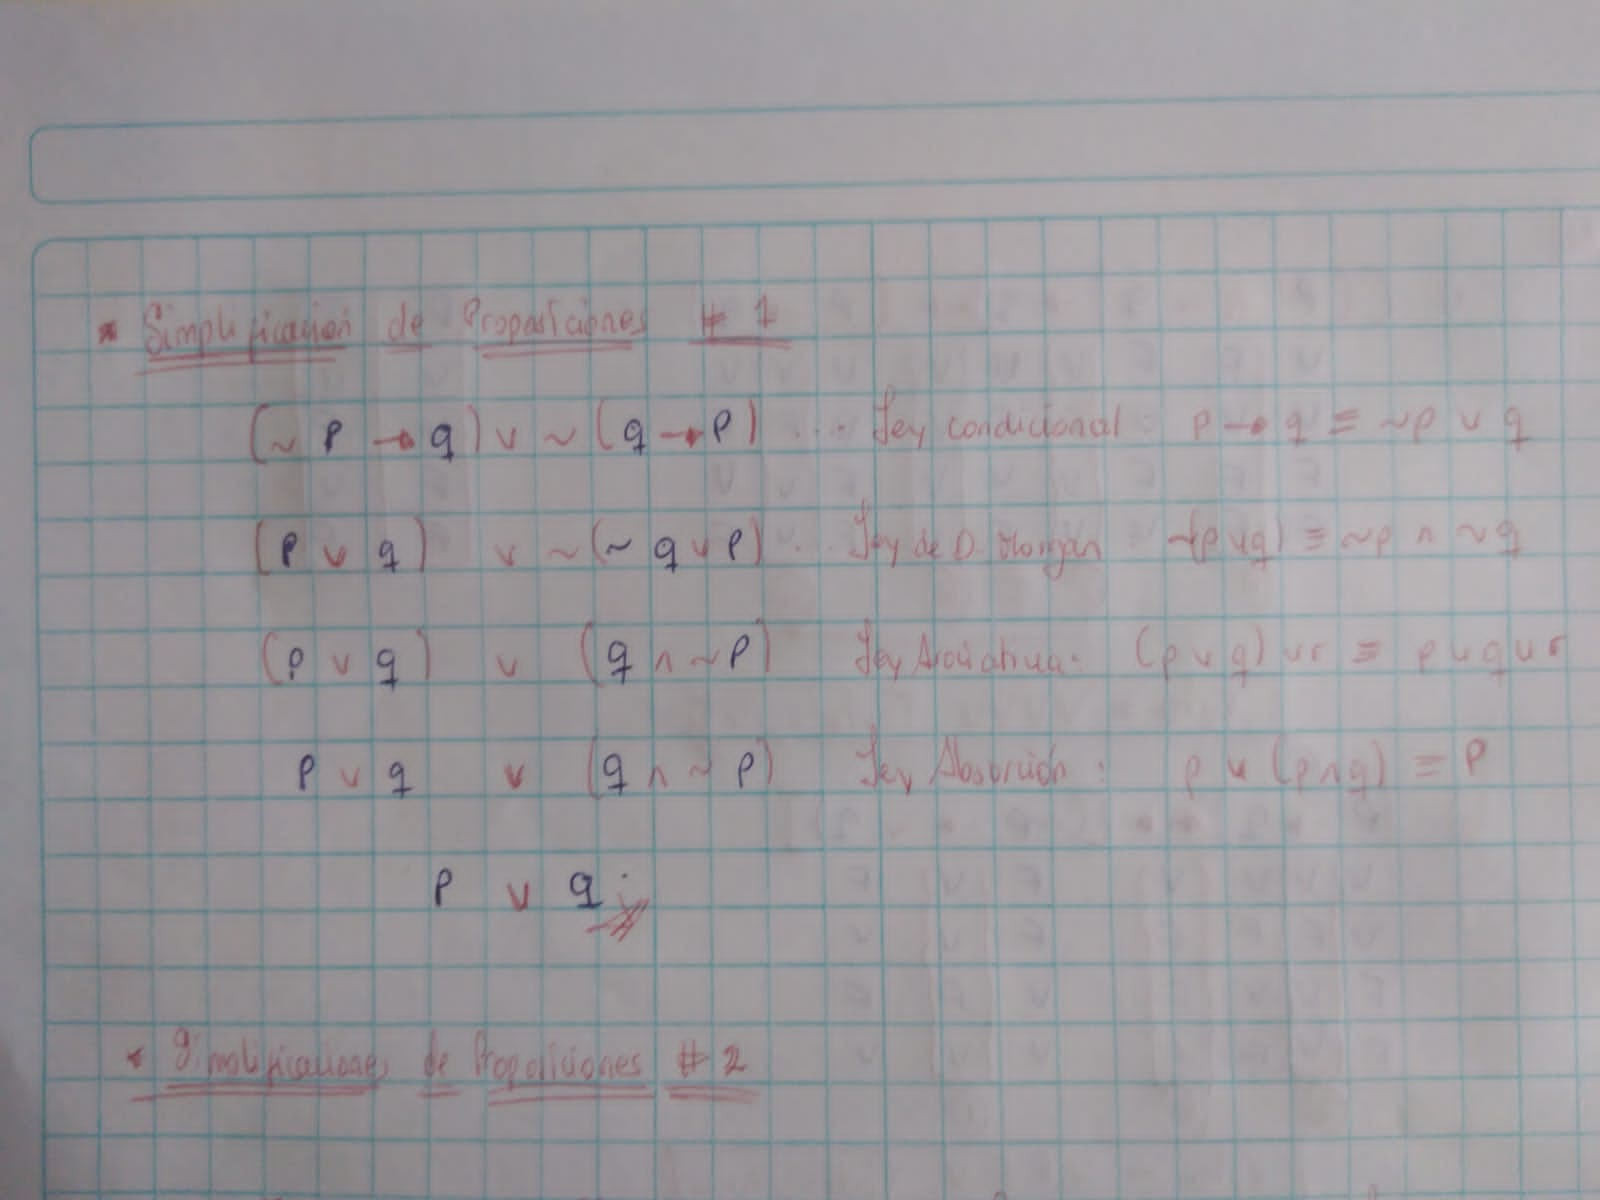 * Simplificación de Proposiciones # 1
(~ p → q) v ~ (q → p) ... Ley condicional: p → q ≡ ~p v q
(p v q) v ~ (~ q v p) ... Ley de D. Morgan ~(p v q) ≡ ~p ∧ ~q
(p v q) v (q ∧ ~ p) Ley Asociativa: (p v q) v r ≡ p v q v r
p v q v (q ∧ ~ p) Ley Absorción: p v (p ∧ q) ≡ p
p v q
* Simplificaciones de Proposiciones # 2